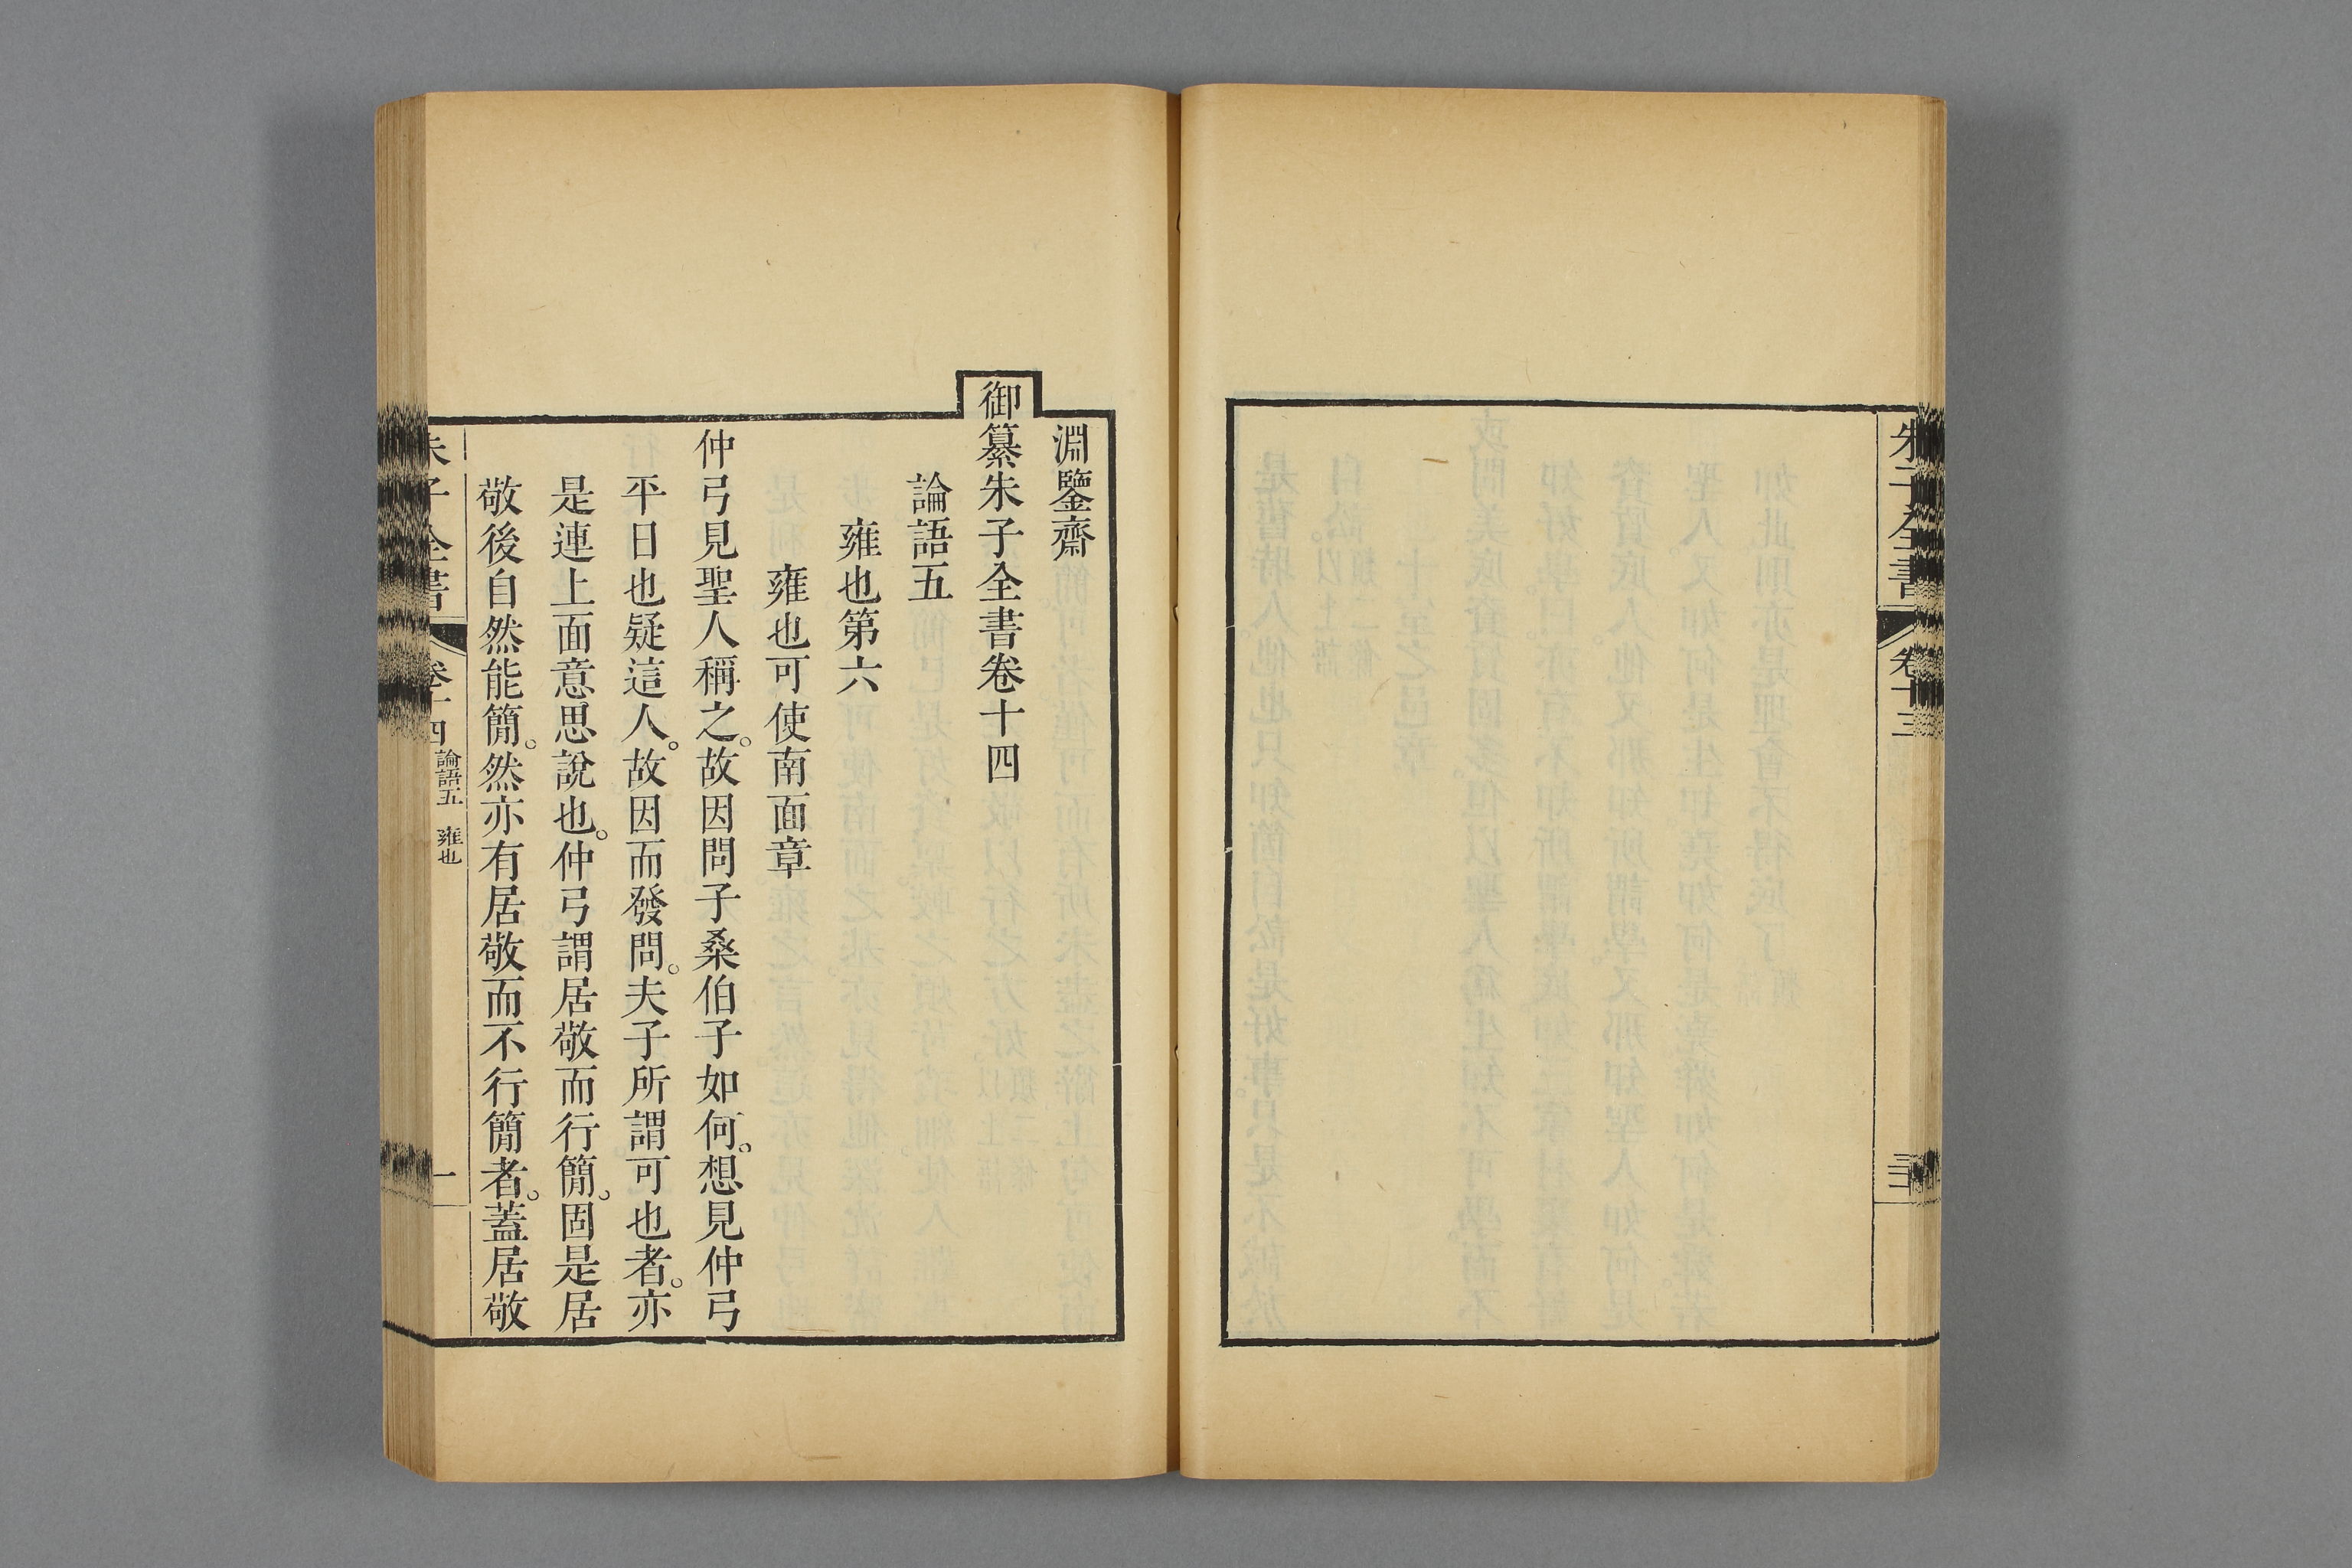 朱子全書 卷十三
淵鑒齋
御纂朱子全書卷十四
論語五
雍也第六
雍也可使南面章
仲弓見聖人稱之。故因問子桑伯子如何。想見仲弓
平日也疑這人。故因而發問。夫子所謂可也者。亦
是連上面意思說也。仲弓謂居敬而行簡。固是居
敬後自然能簡。然亦有居敬而不行簡者。蓋居敬
朱子全書 卷十四 論語五 雍也 一